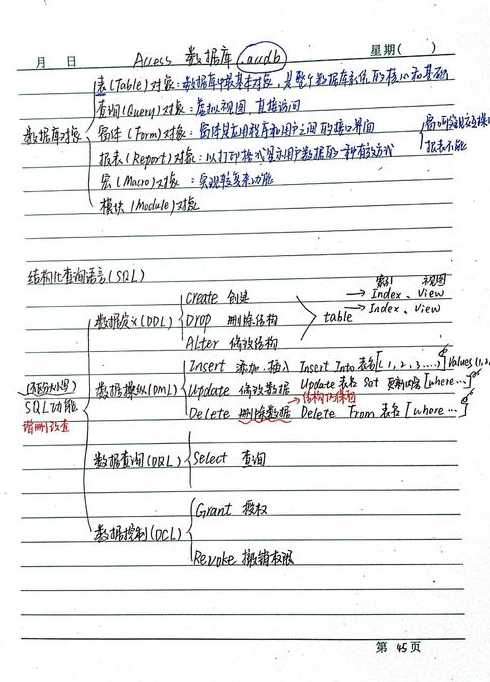 月 日 Access 数据库 .accdb 星期( )
数据库对象
表(Table)对象:数据库中最基本对象,是整个数据库系统的核心和基础
查询(Query)对象:虚拟视图,直接访问
窗体(Form)对象:窗体是应用程序和用户之间的接口界面
报表(Report)对象:以打印格式显示用户数据的一种有效方式
报表不能
宏(Macro)对象:实现较复杂功能
模块(Module)对象
结构化查询语言(SQL)
SQL功能
增删改查
数据定义(DDL)
Create 创建
Drop 删除结构
Alter 修改结构
table
索引 视图
→ Index、View
→ Index、View
数据操纵(DML)
Insert 添加、插入 Insert Into 表名[(1,2,3,...)] Values(1,2,
Update 修改数据 Update 表名 Set 更新内容 [where...]
Delete 删除数据 Delete From 表名 [where...]
数据查询(DQL)
Select 查询
数据控制(DCL)
Grant 授权
Revoke 撤销权限
第 45 页